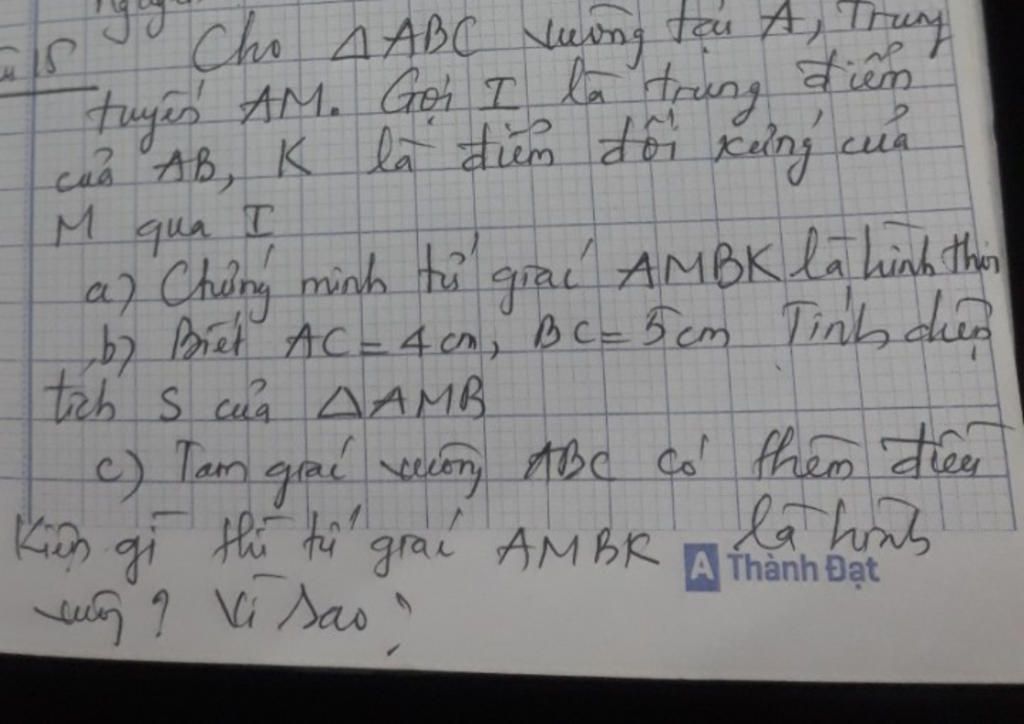 15 Cho △ABC vuông tại A, Trung
tuyến AM. Gọi I là trung điểm
của AB, K là điểm đối xứng của
M qua I
a) Chứng minh tứ giác AMBK là hình thoi
b) Biết AC = 4 cm, BC = 5 cm Tính diện
tích S của △AMB
c) Tam giác vuông ABC có thêm điều
Kiện gì thì tứ giác AMBK là hình
vuông? Vì sao?
A Thành Đạt